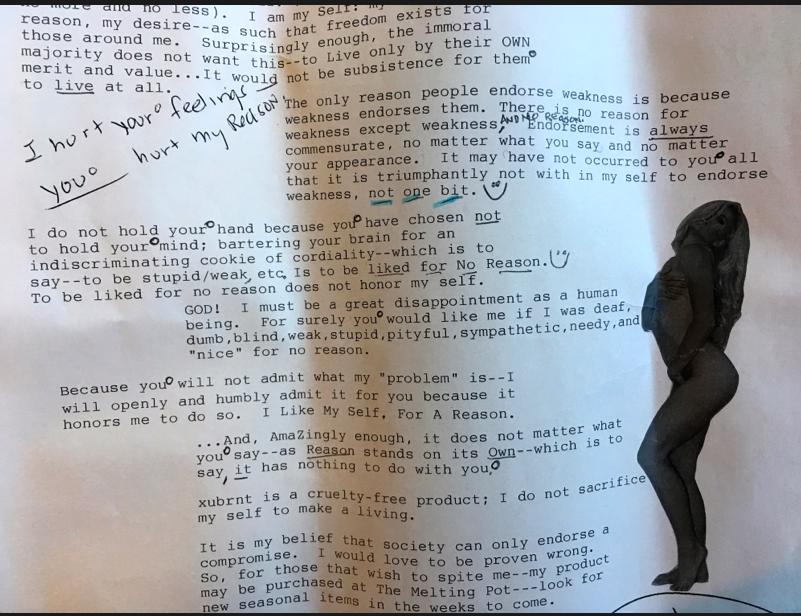 no more and no less). I am my Self: my
reason, my desire--as such that freedom exists for
those around me. Surprisingly enough, the immoral
majority does not want this--to Live only by their OWN
merit and value...It would not be subsistence for them
to live at all.
I hurt your feelings
you hurt my Reason!
The only reason people endorse weakness is because
weakness endorses them. There is no reason for
AND NO REASON.
weakness except weakness, Endorsement is always
commensurate, no matter what you say and no matter
your appearance. It may have not occurred to you all
that it is triumphantly not with in my self to endorse
weakness, not one bit.
I do not hold your hand because you have chosen not
to hold your mind; bartering your brain for an
indiscriminating cookie of cordiality--which is to
say--to be stupid/weak, etc. Is to be liked for No Reason.
To be liked for no reason does not honor my self.
GOD! I must be a great disappointment as a human
being. For surely you would like me if I was deaf,
dumb,blind,weak,stupid,pityful,sympathetic,needy,and
"nice" for no reason.
Because you will not admit what my "problem" is--I
will openly and humbly admit it for you because it
honors me to do so. I Like My Self, For A Reason.
...And, AmaZingly enough, it does not matter what
you say--as Reason stands on its Own--which is to
say, it has nothing to do with you,
xubrnt is a cruelty-free product; I do not sacrifice
my self to make a living.
It is my belief that society can only endorse a
compromise. I would love to be proven wrong.
So, for those that wish to spite me--my product
may be purchased at The Melting Pot---look for
new seasonal items in the weeks to come.